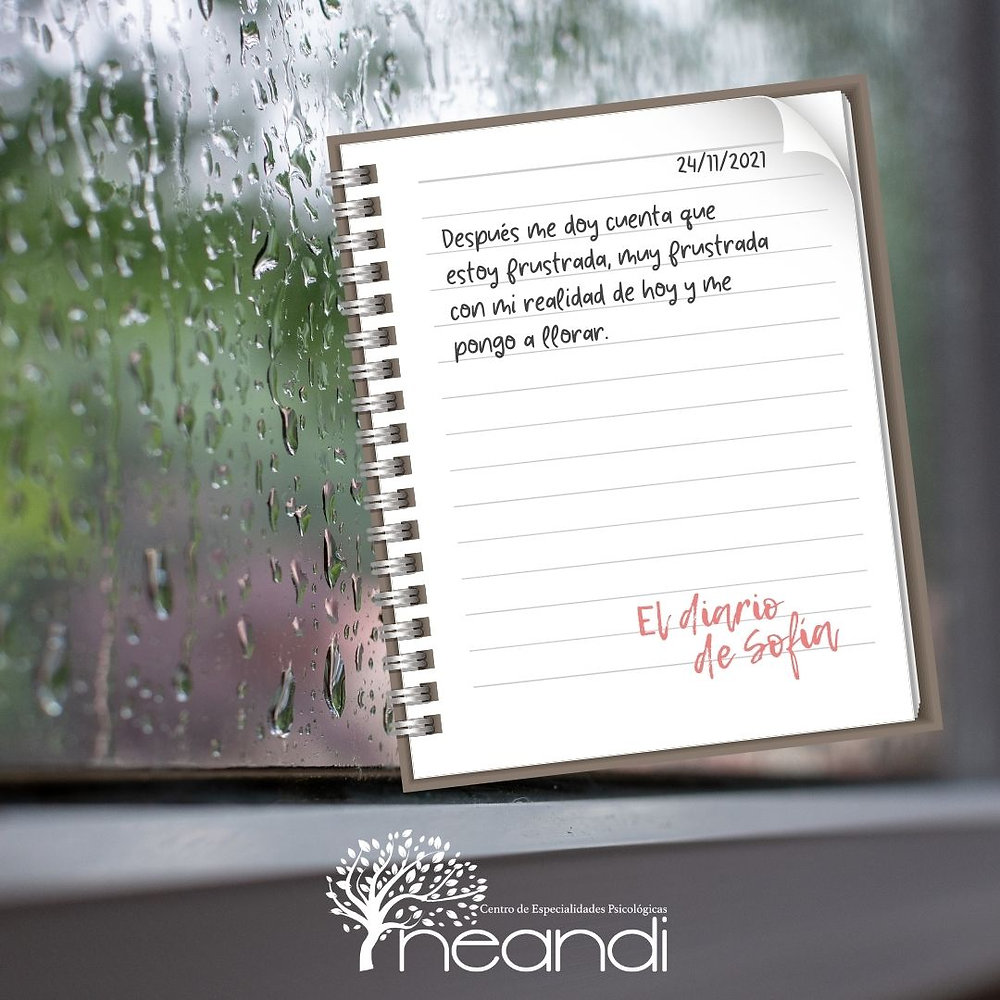 24/11/2021
Después me doy cuenta que
estoy frustrada, muy frustrada
con mi realidad de hoy y me
pongo a llorar.
El diario
de Sofía
Centro de Especialidades Psicológicas
neandi